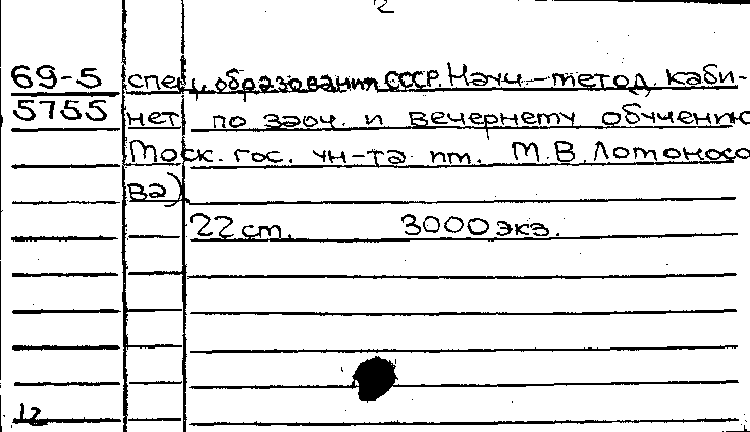 2
69-5 спец. образования СССР. Науч.-метод. каби-
5755 нет по заоч. и вечернему обучению
Моск. гос. ун-та им. М.В. Ломоносо
ва).
22 ст. 3000 экз.
12